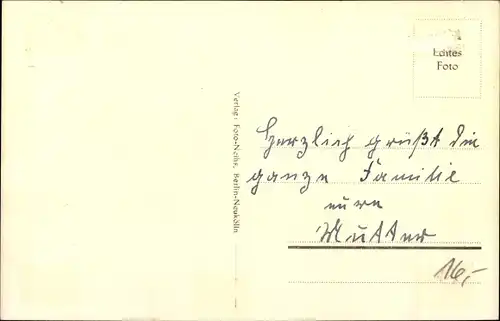 Echtes
Foto
Verlag: Foto-Nehr, Berlin-Neukölln
Herzlich grüßt die
ganze Familie
eure
Mutter
16,-